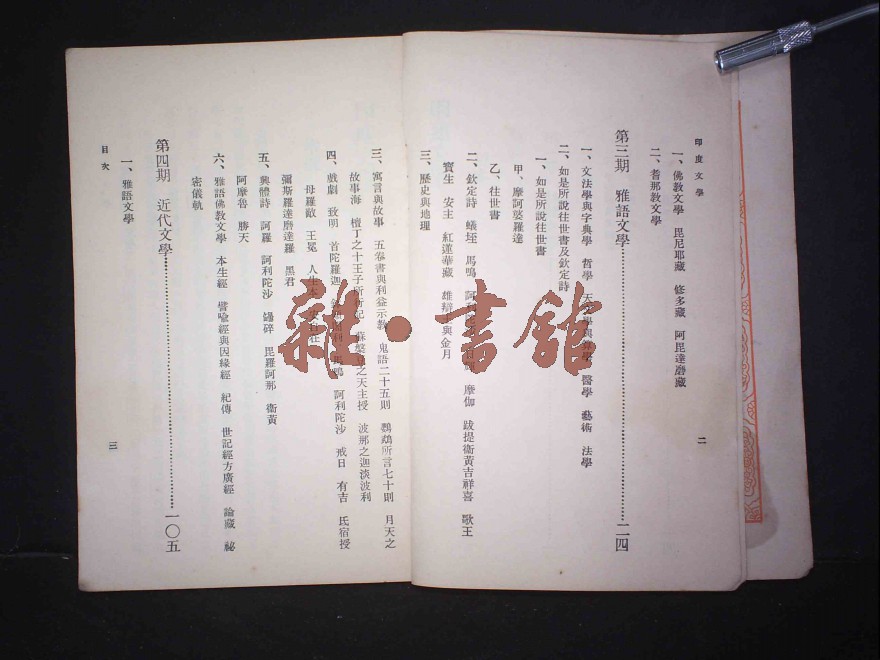 印度文學
一、佛教文學 毘尼耶藏 修多藏 阿毘達磨藏
二、耆那教文學
第三期 雅語文學 二四
一、文法學與字典學 哲學 醫學 藝術 法學
二、如是所說往世書及欽定詩
一、如是所說往世書
甲、摩訶婆羅達
乙、往世書
二、欽定詩 蟻垤 馬鳴 摩伽 跋提衛黃吉祥喜 歌王
寶生 安主 紅蓮華藏 雄辯 與金月
三、歷史與地理
二
三、寓言與故事 五卷書與利益示教 鬼語二十五則 鸚鵡所言七十則 月天之
故事海 檀丁之十王子所行記 之天主授 波那之迦淡波利
四、戲劇 致明 首陀羅迦 馬鳴 阿利陀沙 戒日 有吉 氏宿授
母羅敵 王冕 人生
彌斯羅達磨達羅 黑君
五、興體詩 訶羅 阿利陀沙 罎碎 毘羅訶那 衛黃
阿摩魯 勝天
六、雅語佛教文學 本生經 譬喩經與因緣經 紀傳 世記經方廣經 論藏 祕
密儀軌
第四期 近代文學 一〇五
一、雅語文學
目次
三
雜·書館